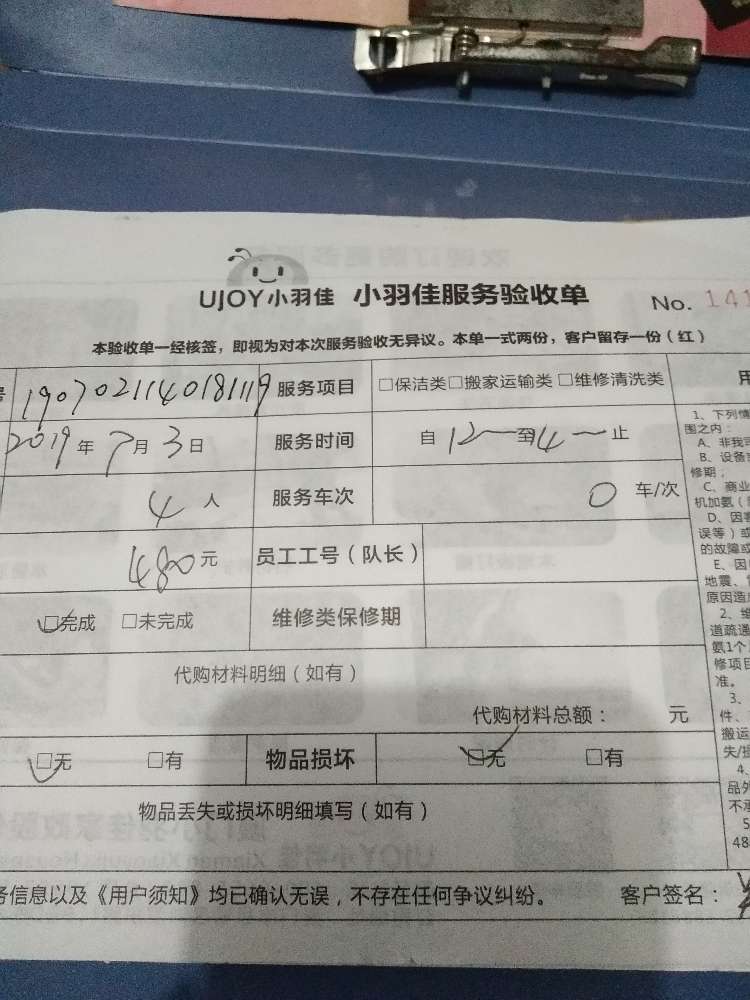 UJOY小羽佳 小羽佳服务验收单 No. 141
本验收单一经核签，即视为对本次服务验收无异议。本单一式两份，客户留存一份（红）
号 1907021140181119 服务项目 □保洁类□搬家运输类□维修清洗类 用
2019年7月3日 服务时间 自12一至4一止
4人 服务车次 0 车/次
480元 员工工号（队长）
☑完成 □未完成 维修类保修期
代购材料明细（如有）
代购材料总额： 元
☑无 □有 物品损坏 ☑无 □有
物品丢失或损坏明细填写（如有）
务信息以及《用户须知》均已确认无误，不存在任何争议纠纷。 客户签名：
1、下列情
围之内：
A、非我司
B、设备
修期；
C、商业
机加氨（
D、因客
误等）或
的故障或
E、因
地震、
原因造成
2、维
道疏通
氨1个
修项目
准。
3、
件、
搬运
失/损
4、
品外
不承
5
48